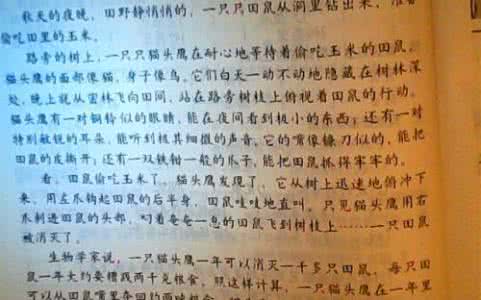 秋天的夜晚，田野静悄悄的，一只只田鼠从洞里钻出来，准备
偷吃田里的玉米。
路旁的树上，一只只猫头鹰在耐心地等待着偷吃玉米的田鼠。
猫头鹰的面部像猫，身子像鸟，它们白天一动不动地隐藏在树林深
处，晚上就从密林飞向田间，站在路旁树枝上俯视着田鼠的行动。
猫头鹰有一对铜铃似的眼睛，能在夜间看到极小的东西；还有一对
特别敏锐的耳朵，能听到极其细微的声音，它的嘴像镰刀似的，能把
田鼠的皮撕开；还有一双铁钳一般的爪子，能把田鼠抓得牢牢的。
看，田鼠偷吃玉米了，猫头鹰发现了，它从树上迅速地俯冲下
来，用左爪钩起田鼠的后半身，田鼠哇哇地直叫。只见猫头鹰用右
爪刺进田鼠的头部，叼着奄奄一息的田鼠飞到树枝上………一只田鼠
被消灭了。
生物学家说，一只猫头鹰一年可以消灭一千多只田鼠，每只田
鼠一年大约要糟蹋两千克粮食，照这样计算，一只猫头鹰在一年里
可以从田鼠嘴里夺回约两吨粮食